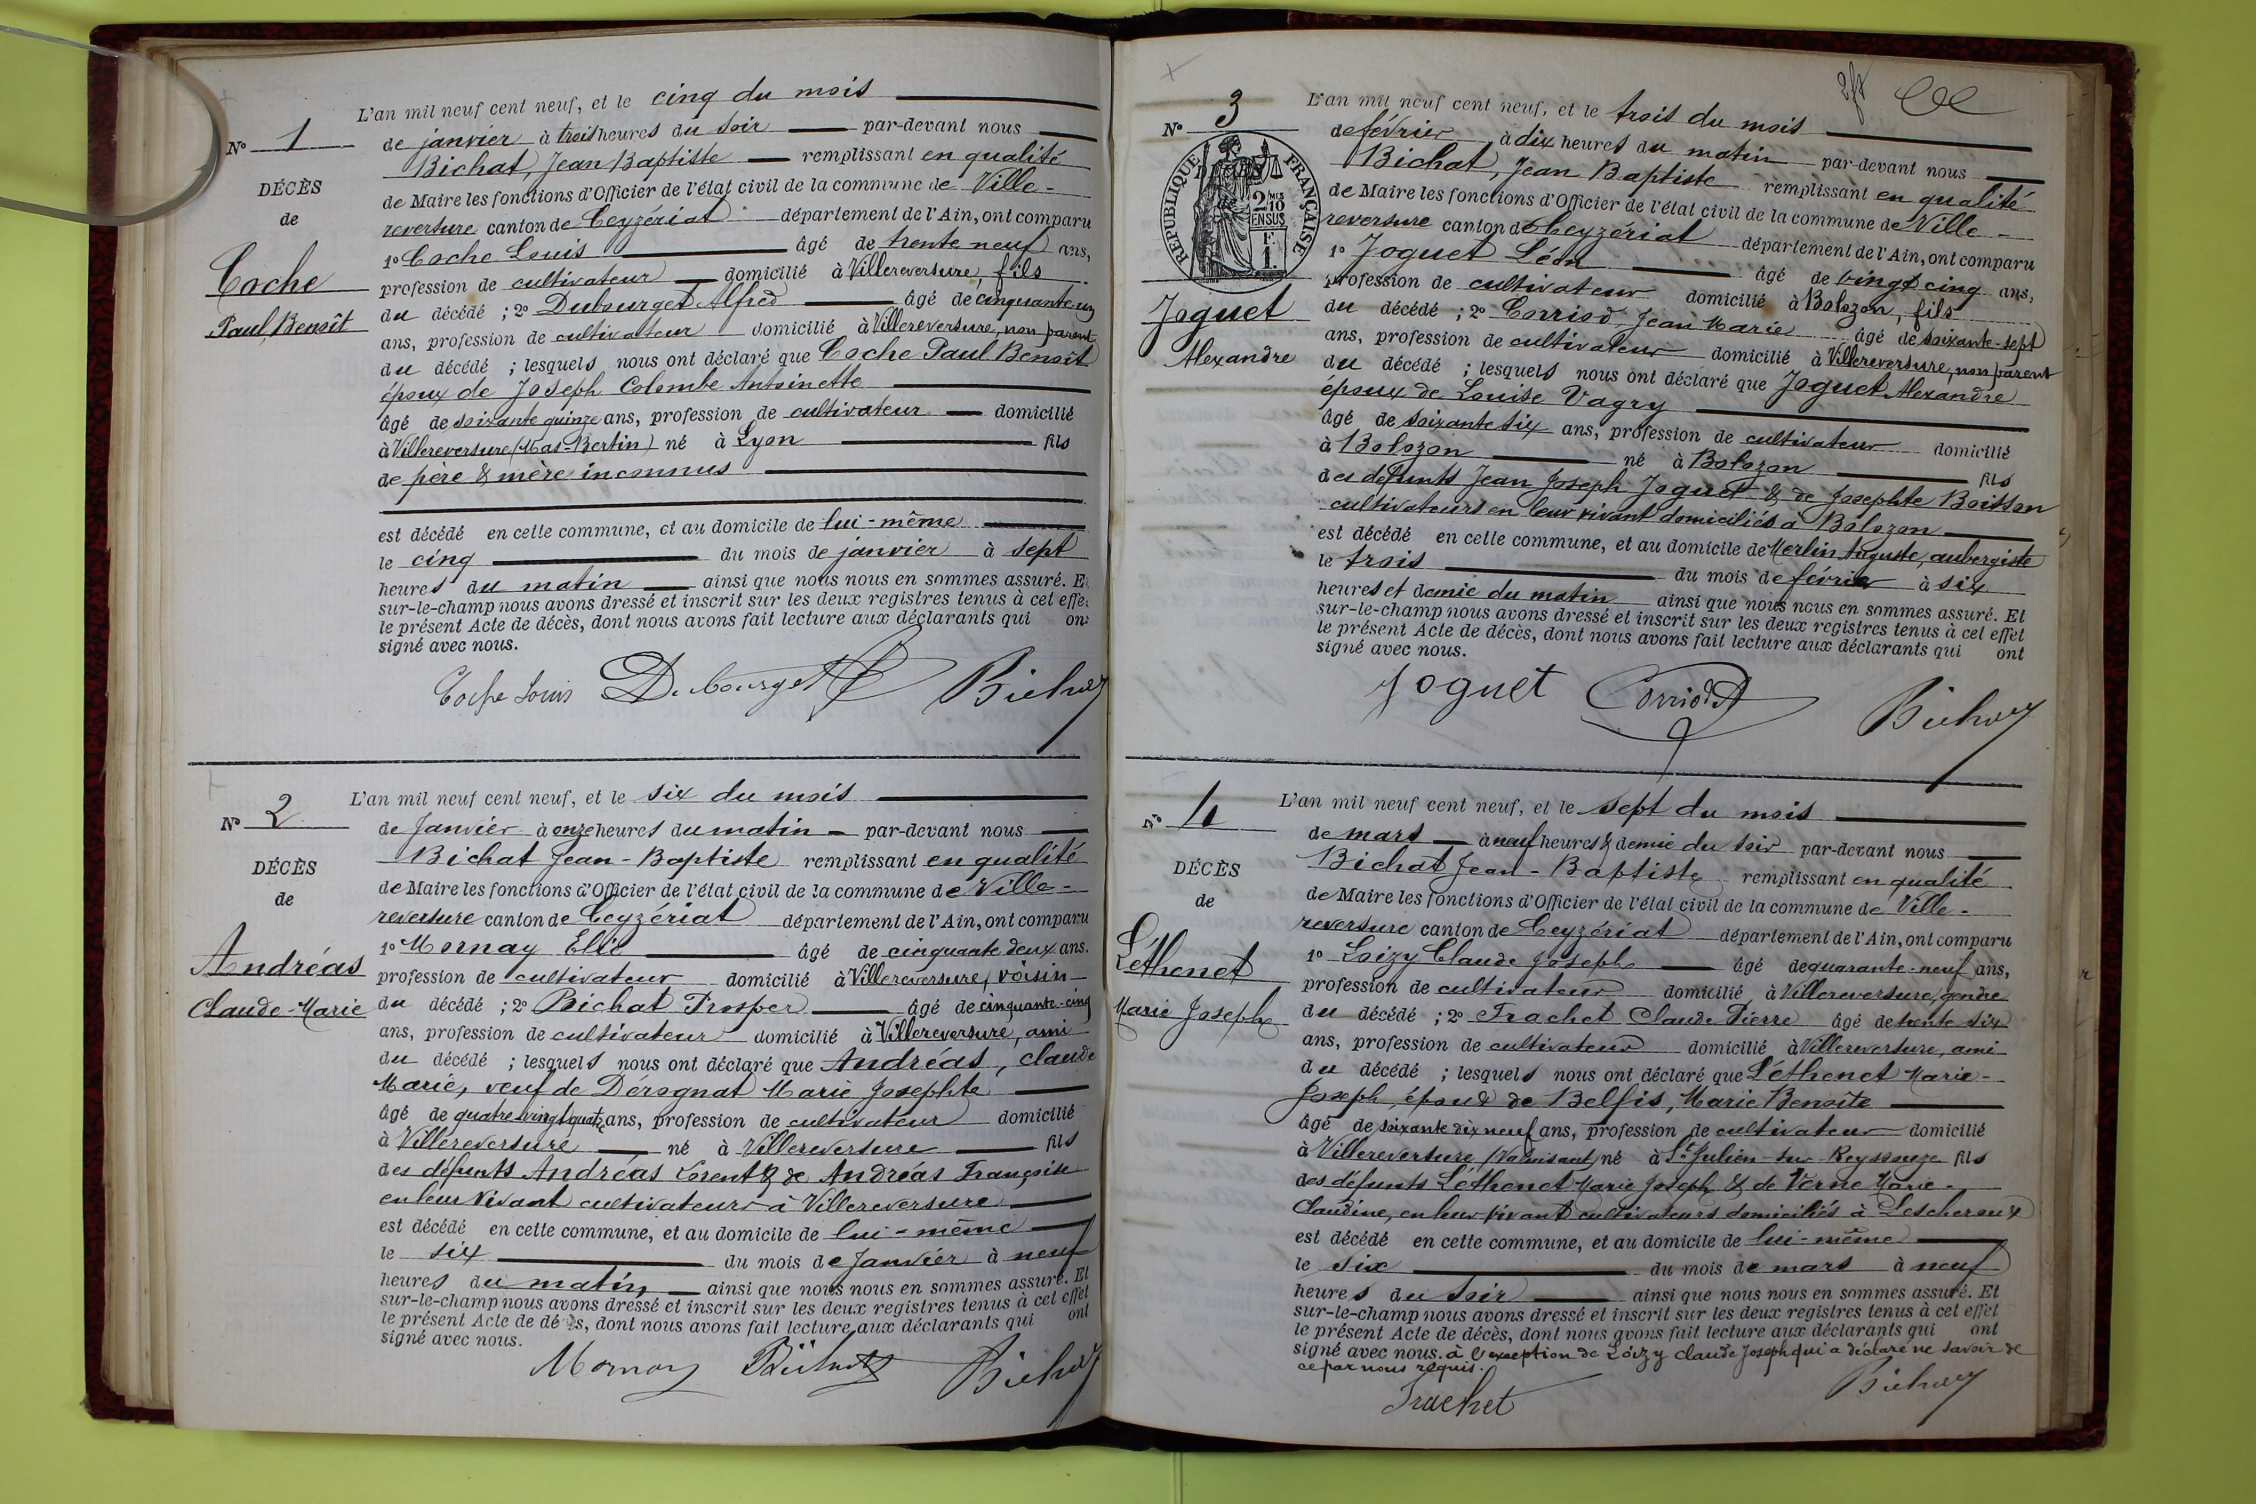 L'an mil neuf cent neuf, et le cinq du mois
N° 1
de janvier à trois heures du soir par-devant nous
Bichat, Jean Baptiste remplissant en qualité
DÉCÈS
de Maire les fonctions d'Officier de l'état civil de la commune de Ville-
de
reversure canton de Ceyzériat département de l'Ain, ont comparu
1° Coche Louis âgé de trente neuf ans,
Coche
profession de cultivateur domicilié à Villereversure, fils
Paul, Benoît
du décédé ; 2° Dubourget Alfred âgé de cinquante un
ans, profession de cultivateur domicilié à Villereversure, non parent
du décédé ; lesquels nous ont déclaré que Coche Paul Benoît
époux de Joseph Colombe Antoinette
âgé de soixante quinze ans, profession de cultivateur domicilié
à Villereversure (Mas-Bertin) né à Lyon fils
de père & mère inconnus
est décédé en cette commune, et au domicile de lui-même
le cinq du mois de janvier à sept
heures du matin ainsi que nous nous en sommes assuré. Et
sur-le-champ nous avons dressé et inscrit sur les deux registres tenus à cet effet
le présent Acte de décès, dont nous avons fait lecture aux déclarants qui ont
signé avec nous.
Coche Louis Dubourget Bichat
L'an mil neuf cent neuf, et le six du mois
N° 2
de Janvier à onze heures du matin par-devant nous
Bichat Jean-Baptiste remplissant en qualité
DÉCÈS
de Maire les fonctions d'Officier de l'état civil de la commune de Ville-
de
reversure canton de Ceyzériat département de l'Ain, ont comparu
1° Mornay Elie âgé de cinquante deux ans.
Andréas
profession de cultivateur domicilié à Villereversure, voisin
Claude-Marie
du décédé ; 2° Bichat Prosper âgé de cinquante-cinq
ans, profession de cultivateur domicilié à Villereversure, ami
du décédé ; lesquels nous ont déclaré que Andréas, Claude
Marie, veuf de Dérognat Marie Josephte
âgé de quatre-vingt quatre ans, profession de cultivateur domicilié
à Villereversure né à Villereversure fils
des défunts Andréas Lorent & de Andréas Françoise
en leur vivant cultivateurs à Villereversure
est décédé en cette commune, et au domicile de lui-même
le six du mois de Janvier à neuf
heures du matin ainsi que nous nous en sommes assuré. Et
sur-le-champ nous avons dressé et inscrit sur les deux registres tenus à cet effet
le présent Acte de décès, dont nous avons fait lecture aux déclarants qui ont
signé avec nous.
Mornay Bichat Bichat
L'an mil neuf cent neuf, et le trois du mois
N° 3
de février à dix heures du matin par-devant nous
Bichat, Jean Baptiste remplissant en qualité
RÉPUBLIQUE FRANÇAISE
2 10
EN SUS
F.
1.
de Maire les fonctions d'Officier de l'état civil de la commune de Ville-
reversure canton de Ceyzériat département de l'Ain, ont comparu
1° Joguet Léon âgé de vingt cinq ans,
Joguet
profession de cultivateur domicilié à Bolozon, fils
Alexandre
du décédé ; 2° Corriod, Jean Marie âgé de soixante-sept
ans, profession de cultivateur domicilié à Villereversure, non parent
du décédé ; lesquels nous ont déclaré que Joguet Alexandre
époux de Louise Vagry
âgé de soixante six ans, profession de cultivateur domicilié
à Bolozon né à Bolozon fils
des défunts Jean Joseph Joguet & de Josephte Boisson
cultivateurs en leur vivant domiciliés à Bolozon
est décédé en cette commune, et au domicile de Merlin Auguste, aubergiste
le trois du mois de février à six
heures et demie du matin ainsi que nous nous en sommes assuré. Et
sur-le-champ nous avons dressé et inscrit sur les deux registres tenus à cet effet
le présent Acte de décès, dont nous avons fait lecture aux déclarants qui ont
signé avec nous.
Joguet Corriod Bichat
L'an mil neuf cent neuf, et le sept du mois
N° 4
de mars à neuf heures & demie du soir par-devant nous
Bichat Jean-Baptiste remplissant en qualité
DÉCÈS
de Maire les fonctions d'Officier de l'état civil de la commune de Ville-
de
reversure canton de Ceyzériat département de l'Ain, ont comparu
1° Loizy Claude Joseph âgé de quarante-neuf ans,
Léthenet
profession de cultivateur domicilié à Villereversure, gendre
Marie Joseph
du décédé ; 2° Trachet Claude Pierre âgé de trente six
ans, profession de cultivateur domicilié à Villereversure, ami
du décédé ; lesquels nous ont déclaré que Léthenet Marie-
Joseph, époux de Belfis, Marie Benoîte
âgé de soixante dix neuf ans, profession de cultivateur domicilié
à Villereversure né à St Julien-sur-Reyssouze fils
des défunts Léthenet Marie Joseph & de Verne Marie-
Claudine, en leur vivant cultivateurs domiciliés à Lescheroux
est décédé en cette commune, et au domicile de lui-même
le six du mois de mars à neuf
heures du soir ainsi que nous nous en sommes assuré. Et
sur-le-champ nous avons dressé et inscrit sur les deux registres tenus à cet effet
le présent Acte de décès, dont nous avons fait lecture aux déclarants qui ont
signé avec nous. à l'exception de Loizy Claude Joseph qui a déclaré ne savoir de
ce par nous requis.
Trachet Bichat